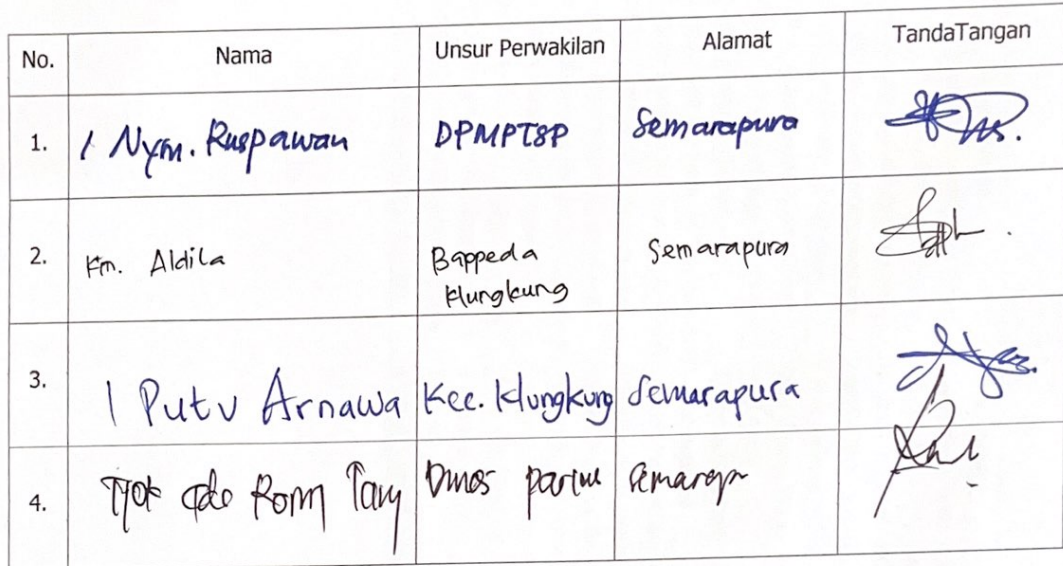 No. Nama Unsur Perwakilan Alamat TandaTangan
1. I Nym. Ruspawan DPMPTSP Semarapura
2. Km. Aldila Bappeda Klungkung Semarapura
3. I Putu Arnawa Kec. Klungkung Semarapura
4. Tjok Gde Rom Dinas